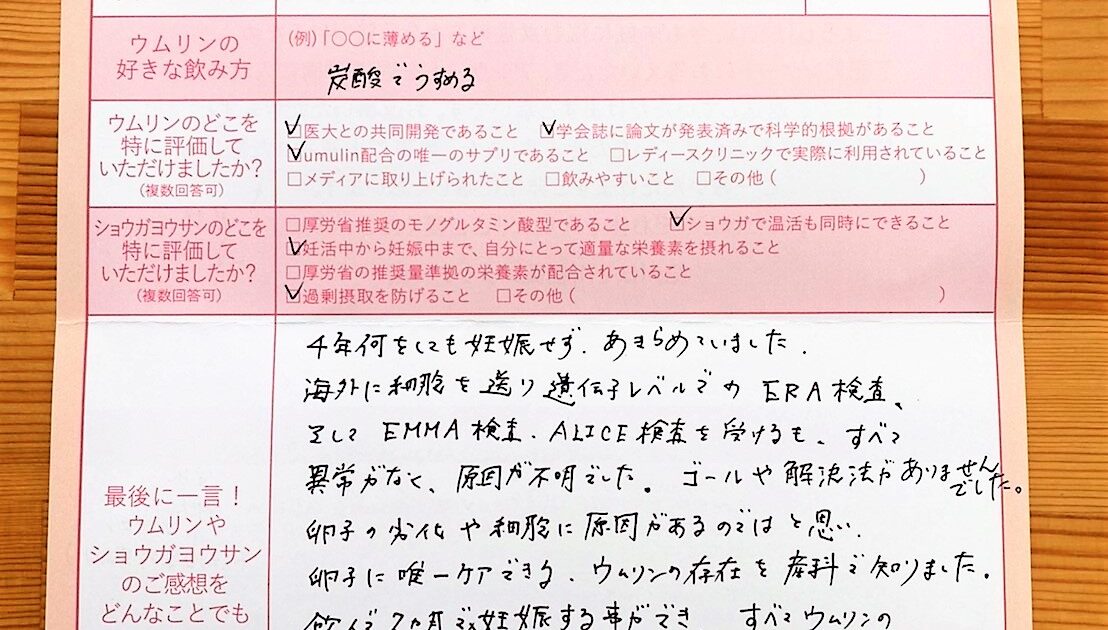 ウムリンの
好きな飲み方
(例)「〇〇に薄める」など
炭酸でうすめる
ウムリンのどこを
特に評価して
いただけましたか?
(複数回答可)
□医大との共同開発であること □学会誌に論文が発表済みで科学的根拠があること
□umulin配合の唯一のサプリであること □レディースクリニックで実際に利用されていること
□メディアに取り上げられたこと □飲みやすいこと □その他( )
ショウガヨウサンのどこを
特に評価して
いただけましたか?
(複数回答可)
□厚労省推奨のモノグルタミン酸型であること □ショウガで温活も同時にできること
□妊活中から妊娠中まで、自分にとって適量な栄養素を摂れること
□厚労省の推奨量準拠の栄養素が配合されていること
□過剰摂取を防げること □その他( )
最後に一言!
ウムリンや
ショウガヨウサン
のご感想を
どんなことでも
4年何をしても妊娠せず、あきらめていました.
海外に細胞を送り遺伝子レベルでの ERA検査、
そして EMMA検査、ALICE検査を受けるも、すべて
異常がなく、原因が不明でした。ゴールや解決法がありませんでした。
卵子の劣化や細胞に原因があるのではと思い
卵子に唯一ケアできる、ウムリンの存在を産科で知りました。
飲んで7ヵ月で妊娠する事ができ すべてウムリンの